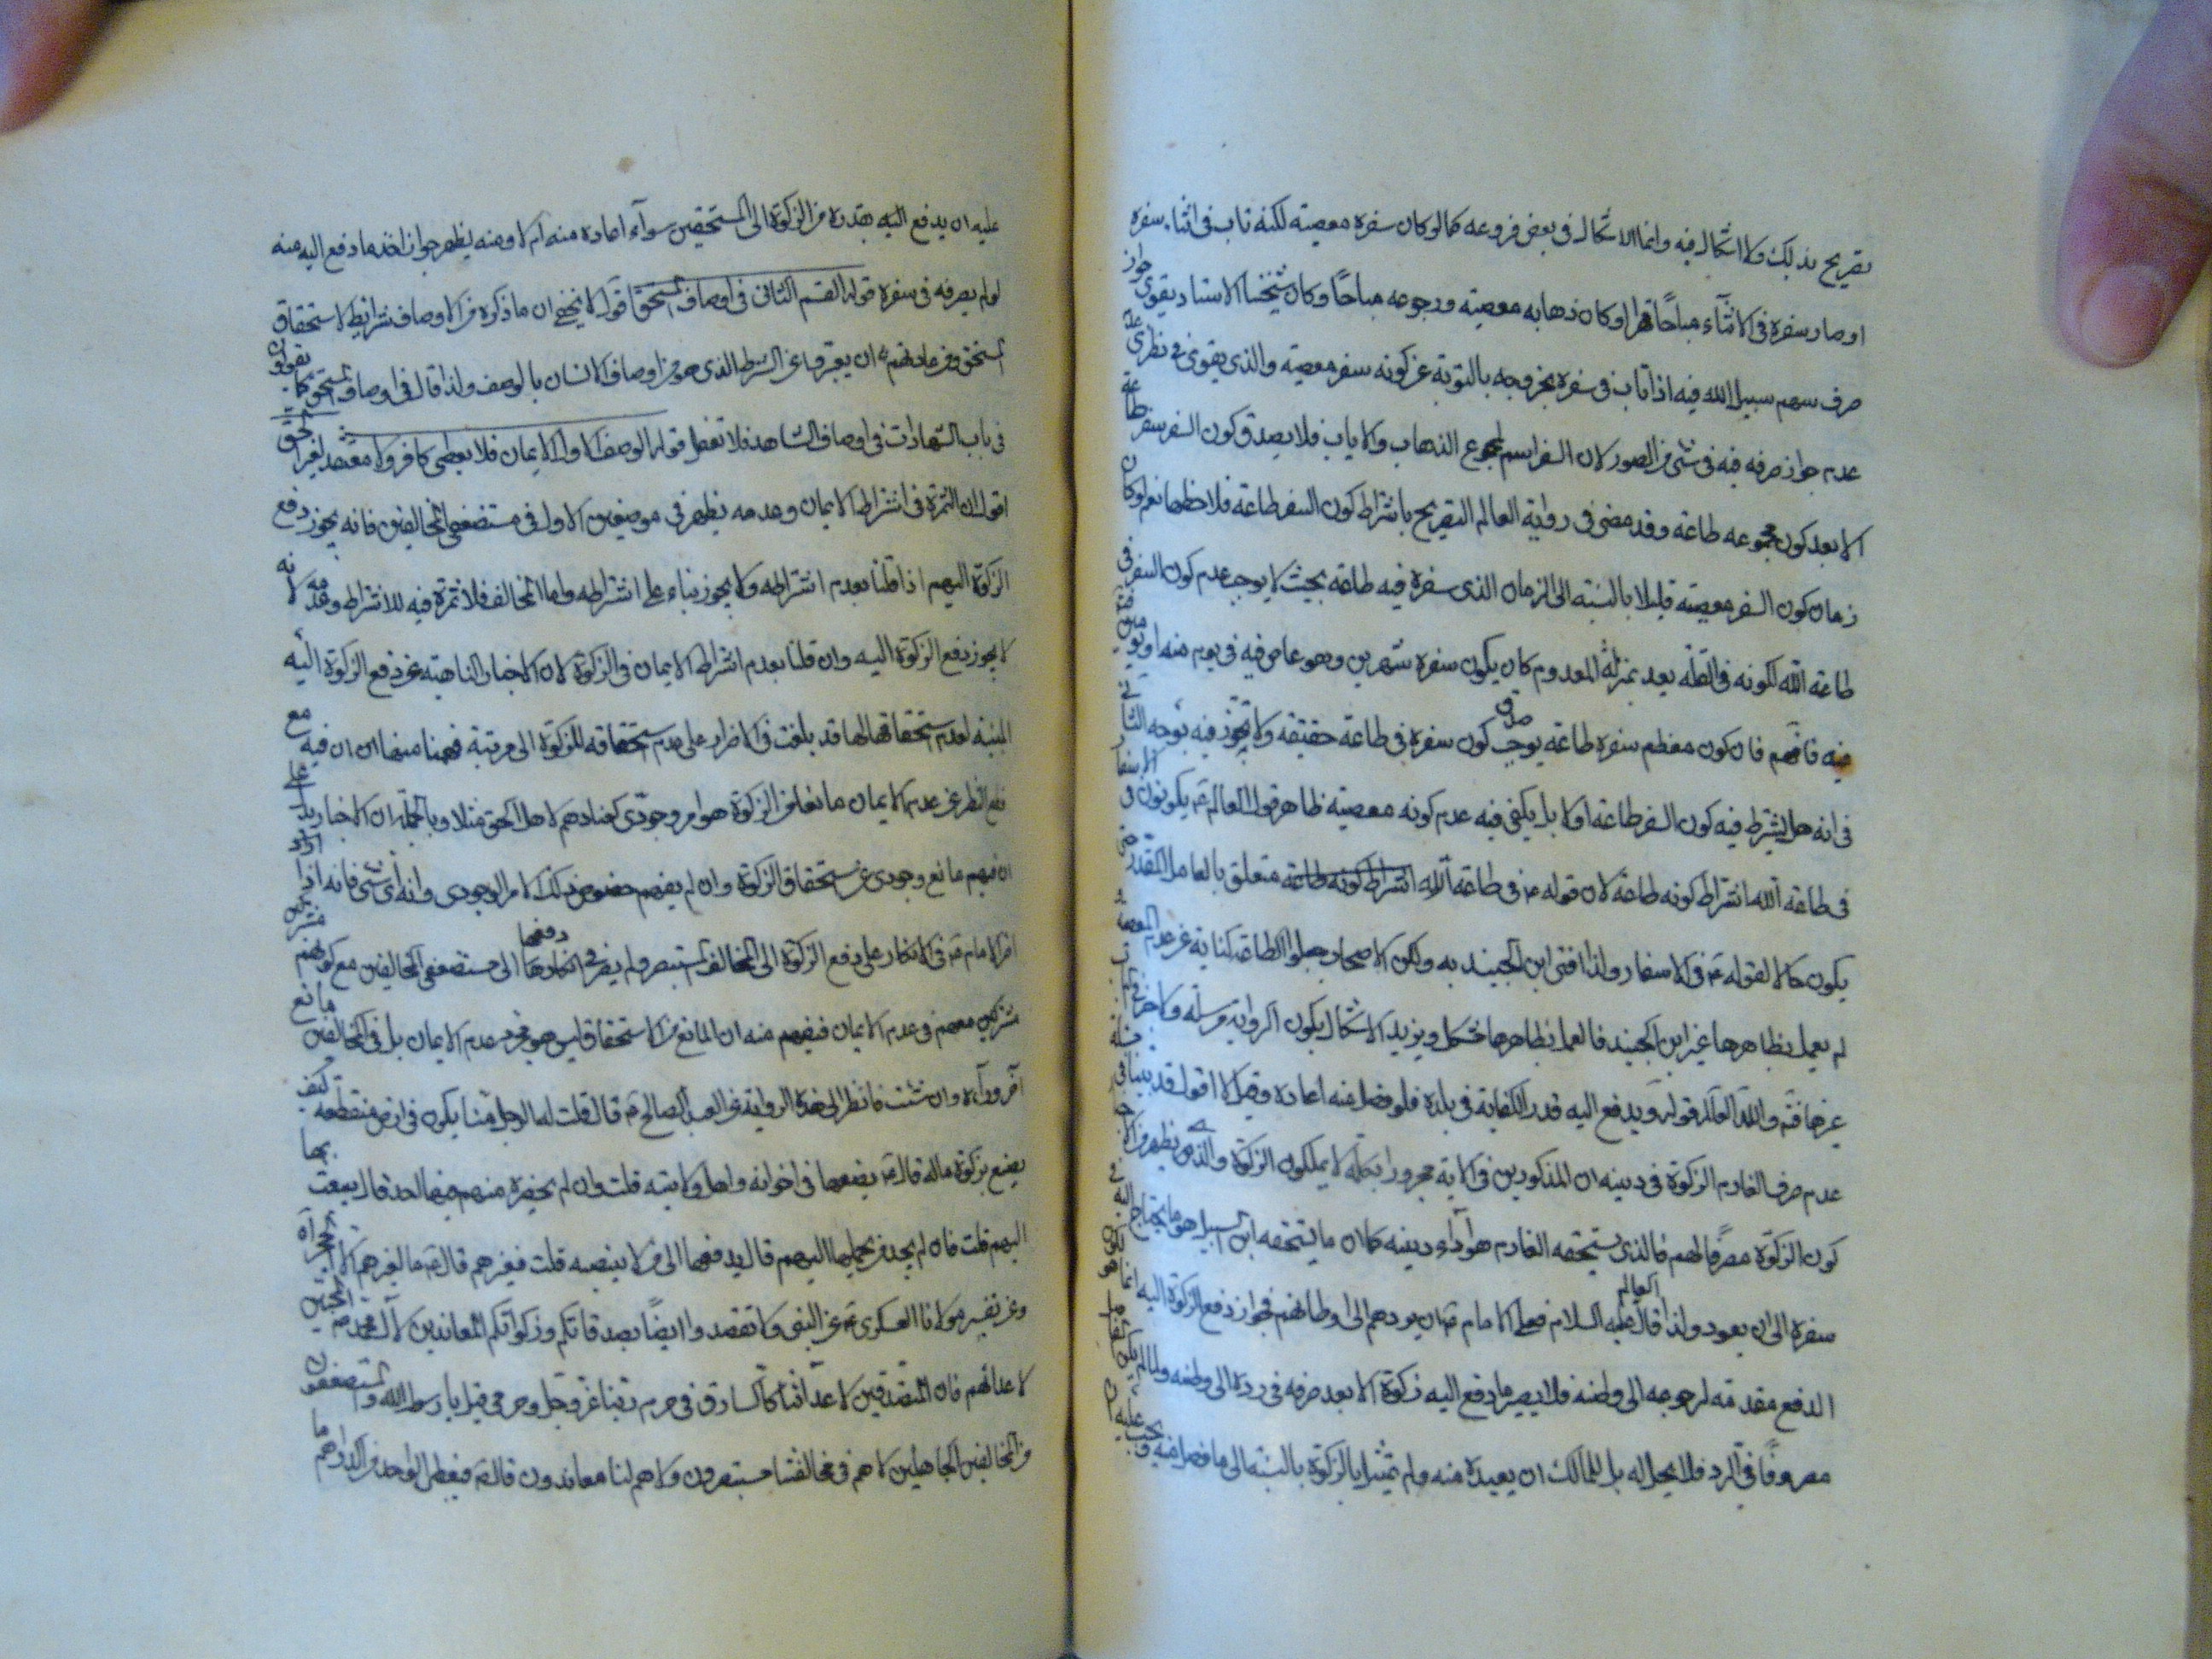 تصريح بذلك ولا اشكال فيه وانما الاشكال فى بعض فروعه كما لو كان سفره معصية لكنه تاب فى اثناء سفره
او صار سفره فى الاثناء مباحًا او كان ذهابه معصية ورجوعه مباحًا وكان شيخنا الاستاد يقوى جواز
صرف سهم سبيل الله فيه اذا تاب فى سفره بخروجه بالتوبة عن كونه سفر معصية والذى يقوى فى نظرى
عدم جواز صرفه فيه فى شئ من الصور لان السفر اسم لمجموع الذهاب والاياب فلا يصدق كون السفر سفر طاعة
الا بعد كون مجموعه طاعة وقد مضى فى رواية العالم التصريح باشراط كون السفر طاعة فلاحظها نعم لو كان
زمان كون السفر معصية قليلا بالنسبة الى الزمان الذى سفره فيه طاعة بحيث لا يوجب عدم كون السفر فى
طاعة الله لكونه فى القلة يعد بمنزلة المعدوم كان يكون سفره شهرين وهو عاص فيه فى يوم منه او يومين
فيه فافهم فان كون معظم سفره طاعة يوجب صدق كون سفره فى طاعة حقيقة ولا تجوز فيه بوجه الثانى
فى انه هل يشترط فيه كون السفر طاعة اولا بل يكفى فيه عدم كونه معصية ظاهر قول العالم ع يكونون فى الاسفار
فى طاعة الله اشتراط كونه طاعة لان قوله ع فى طاعة الله اشراط كونه طاعة متعلق بالعامل المقدر حتى
يكون حالا لقوله ع فى الاسفار ولذا افتى ابن الجنيد به ولكن الاصحاب جعلوا الطاعة كناية عن عدم المعصية
لم يعمل بظاهرها غير ابن الجنيد فالعمل بظاهرها مشكل ويزيد الاشكال بكون الرواية مرسلة
والله العالم قوله ويدفع اليه قدر الكفاية فى بلده فلو فضل منه اعاده وقيل لا اقول قد بينا فى
عدم صرف الغارم الزكوة فى دينه ان المذكورين فى الاية لا يملكون الزكوة والذى يظهر
كون الزكوة مصرفا لهم فالذى يستحقه الغارم هو اداء دينه كما ان ما يستحقه ابن السبيل هو ما يحتاج اليه فى
سفره الى ان يعود ولذا قال العالم عليه السلام فعلى الامام ع ان يردهم الى اوطانهم فجواز دفع الزكوة اليه انما
الدفع مقدمة لرجوعه الى وطنه فلا يصير ما دفع اليه زكوة الا بعد صرفه فى رده الى وطنه ولما لم يكن
مصروفًا فى الرد فلا يحل له بل للمالك ان يعيده منه ولم يتمثل بالزكوة بالنسبة الى ما فضل فيه فيجب
عليه ان يدفع اليه بقدره من الزكوة الى المستحقين سواء اعاده منه ام لا ومنه يظهر جواز اخذ ما دفع اليه منه
لو لم يصرفه فى سفره قوله القسم الثانى فى اوصاف المستحق اقول لا يخفى ان ما ذكره من الاوصاف شرايط لاستحقاق
المستحق ومن عادتهم ان يعبروا عن الشرط الذى هو من اوصاف الانسان بالوصف ولذا قال فى اوصاف المستحق كما يقولون
فى باب الشهادات فى اوصاف الشاهد فلا تغفل قوله الوصف الاول الايمان فلا يعطى كافر ولا معتقد لغير الحق
اقول ان الثمرة فى اشتراط الايمان وعدمه يظهر فى موضعين الاول فى مستضعفى المخالفين فانه يجوز دفع
الزكوة اليهم اذا قلنا بعدم اشتراطه ولا يجوز بناء على اشتراطه واما المخالف فلا ثمرة فيه للاشتراط وعدمه لانه
لا يجوز دفع الزكوة اليه وان قلنا بعدم اشراط الايمان فى الزكوة لان الاخبار الناهية عن دفع الزكوة اليه
المبينة لعدم استحقاقه لها قد بلغت فى الاضرار على عدم استحقاقه للزكوة الى مرتبة فهمنا منها ان فيه مع
قطع النظر عن عدم الايمان مانعا من الزكوة هو امر وجودى كعنادهم لاهل الحق مثلا وبالجملة ان الاخبار يدل على
ان فيهم مانع وجودى عن استحقاق الزكوة وان لم يفهم خصوص ذلك الامر الوجودى وانه اى شئ فانه اذا
الامام ع فى الانكار على دفع الزكوة الى المخالف المستبصر ولم يصرح انكار دفعها الى مستضعفى المخالفين مع كونهم
مشتركين معهم فى عدم الايمان فيفهم منه ان المانع من الاستحقاق ليس هو مجرد عدم الايمان بل فى المخالفين مانع
اخر وراءه وان شئت فانظر الى هذه الرواية عن العبد الصالح ع قال قلت له الرجل منا يكون فى ارض منقطعة كيف
يصنع بزكوة ماله قال ع يضعها فى اخوانه واهل ولايته قلت وان لم يحضره منهم فيها احد قال يبعث بها
اليهم قلت فان لم يجد من يحملها اليهم قال يدفعها الى من لا ينصب قلت فغيرهم قال ع ما لغيرهم الا الحجر
وعن تفسير مولانا العسكرى ع عن النبى ولا تقصدوا ايضًا بصدقاتكم وزكواتكم المعاندين لآل محمد المحبين
لاعدائهم فان المتصدقين لاعدائنا كالسارق فى حرم ربنا عز وجل وحرمى قيل يا رسول الله والمستضعفون
من المخالفين الجاهلين لا هم فى مخالفتنا مستبصرون ولا هم لنا معاندون قال ع فيعطى الواحد من الدراهم ما